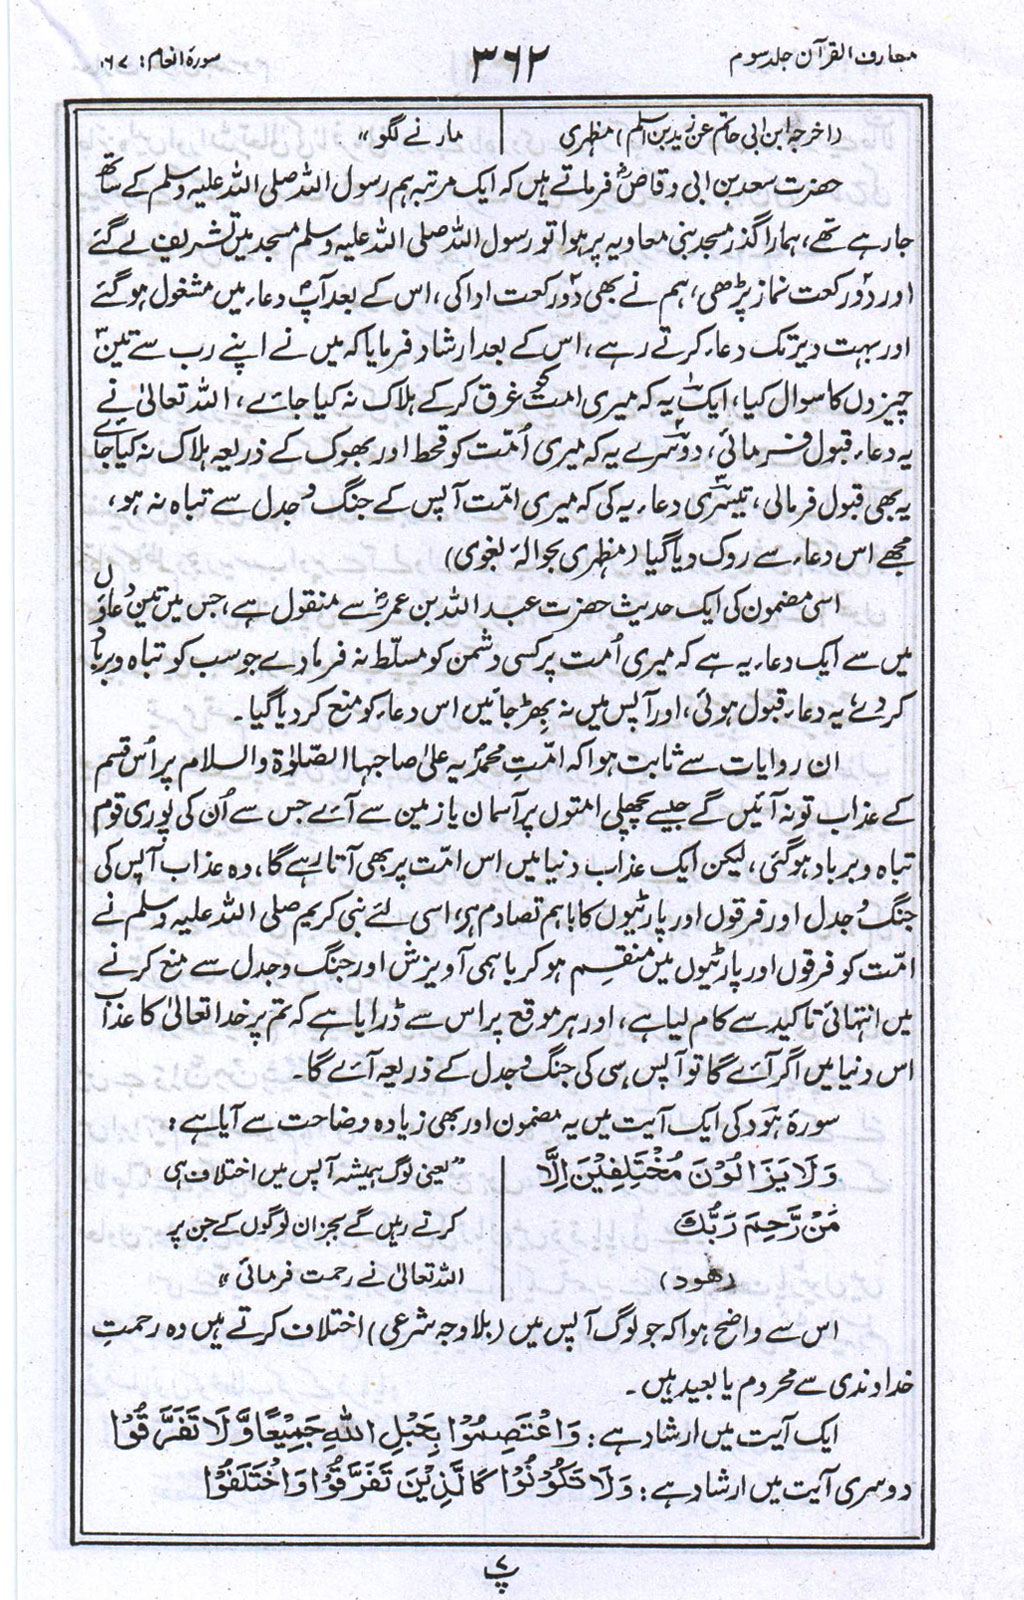 معارف القرآن جلد سوم
۳۶۲
سورۂ انعام : ۶۷
(اخرجہ ابن ابی حاتم عن زید بن اسلم) مظہری
مارنے لگو"
حضرت سعد بن ابی وقاصؓ فرماتے ہیں کہ ایک مرتبہ ہم رسول اللہ صلی اللہ علیہ وسلم کے ساتھ
جا رہے تھے، ہمارا گذر مسجد بنی معاویہ پر ہوا تو رسول اللہ صلی اللہ علیہ وسلم مسجد میں تشریف لے گئے
اور دو رکعت نماز پڑھی، ہم نے بھی دو رکعت ادا کی، اس کے بعد آپؐ دعاء میں مشغول ہو گئے
اور بہت دیر تک دعاء کرتے رہے، اس کے بعد ارشاد فرمایا کہ میں نے اپنے رب سے تین
چیزوں کا سوال کیا، ایک یہ کہ میری امت کو غرق کر کے ہلاک نہ کیا جائے، اللہ تعالیٰ نے
یہ دعاء قبول فرمائی، دوسرے یہ کہ میری اُمّت کو قحط اور بھوک کے ذریعہ ہلاک نہ کیا جائے
یہ بھی قبول فرمالی، تیسری دعاء یہ کی کہ میری امّت آپس کے جنگ و جدل سے تباہ نہ ہو،
مجھے اس دعاء سے روک دیا گیا (مظہری بحوالہ بغوی)
اسی مضمون کی ایک حدیث حضرت عبد اللہ بن عمرؓ سے منقول ہے، جس میں تین دعاؤں
میں سے ایک دعاء یہ ہے کہ میری اُمت پر کسی دشمن کو مسلّط نہ فرمادے جو سب کو تباہ و برباد
کردے یہ دعاء قبول ہوئی، اور آپس میں نہ بِھڑ جائیں اس دعاء کو منع کر دیا گیا۔
ان روایات سے ثابت ہوا کہ امّتِ محمدیہ علیٰ صاحبہا الصّلوٰۃ والسلام پر اُس قسم
کے عذاب تو نہ آئیں گے جیسے پچھلی امتوں پر آسمان یا زمین سے آئے جس سے اُن کی پوری قوم
تباہ و برباد ہو گئی، لیکن ایک عذاب دنیا میں اس امّت پر بھی آتا رہے گا، وہ عذاب آپس کی
جنگ و جدل اور فرقوں اور پارٹیوں کا باہم تصادم ہی، اسی لئے نبی کریم صلی اللہ علیہ وسلم نے
امّت کو فرقوں اور پارٹیوں میں منقسم ہو کر باہمی آویزش اور جنگ و جدل سے منع کرنے
میں انتہائی تاکید سے کام لیا ہے، اور ہر موقع پر اس سے ڈرایا ہے کہ تم پر خدا تعالیٰ کا عذاب
اس دنیا میں اگر آئے گا تو آپس ہی کی جنگ و جدل کے ذریعہ آئے گا۔
سورۂ ہود کی ایک آیت میں یہ مضمون اور بھی زیادہ وضاحت سے آیا ہے :
وَلَا یَزَالُوْنَ مُخْتَلِفِیْنَ اِلَّا
مَنْ رَّحِمَ رَبُّكَ
(ھود)
"یعنی لوگ ہمیشہ آپس میں اختلاف ہی
کرتے رہیں گے بجز ان لوگوں کے جن پر
اللہ تعالیٰ نے رحمت فرمائی"
اس سے واضح ہوا کہ جو لوگ آپس میں (بلا وجہ شرعی) اختلاف کرتے ہیں وہ رحمتِ
خداوندی سے محروم یا بعید ہیں۔
ایک آیت میں ارشاد ہے : وَاعْتَصِمُوْا بِحَبْلِ اللّٰهِ جَمِیْعًا وَّلَا تَفَرَّقُوْا
دوسری آیت میں ارشاد ہے : وَلَا تَكُوْنُوْا كَالَّذِیْنَ تَفَرَّقُوْا وَاخْتَلَفُوْا
پ ۷